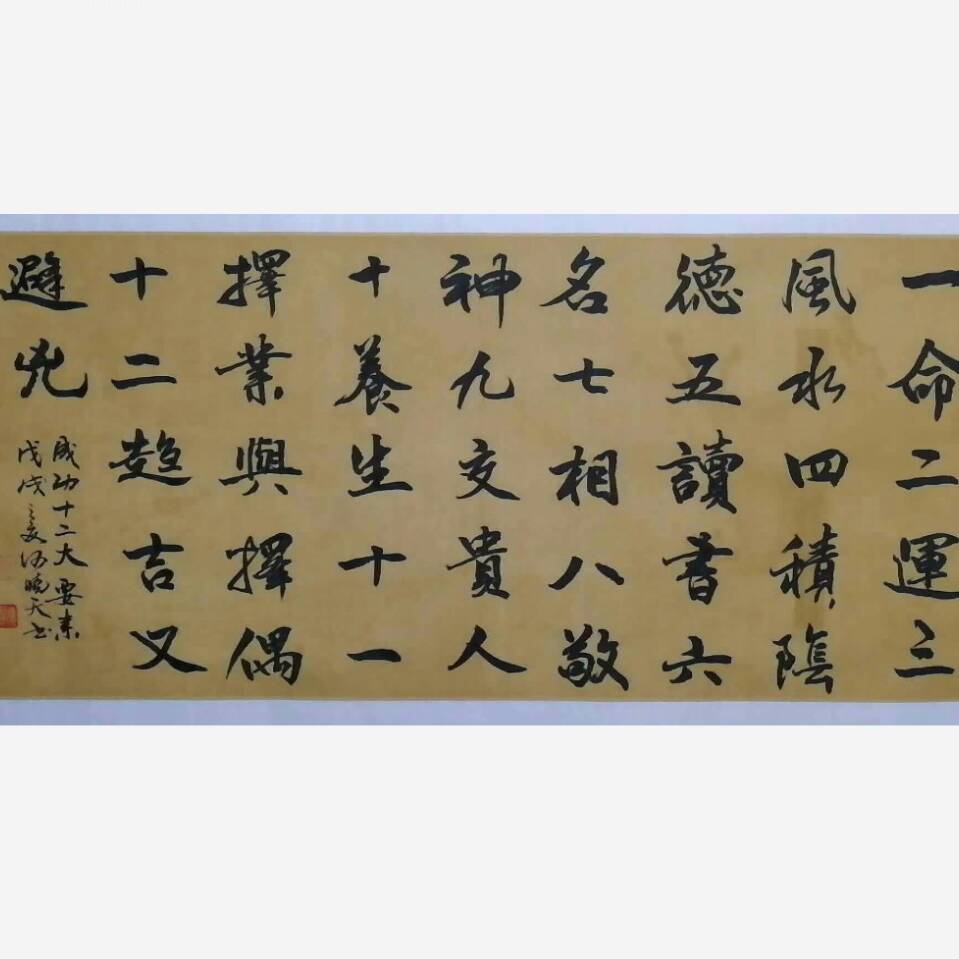 一命二運三
風水四積陰
德五讀書六
名七相八敬
神九交貴人
十養生十一
擇業與擇偶
十二趨吉又
避兇
成功十二大要素
戊戌之夏曉天书